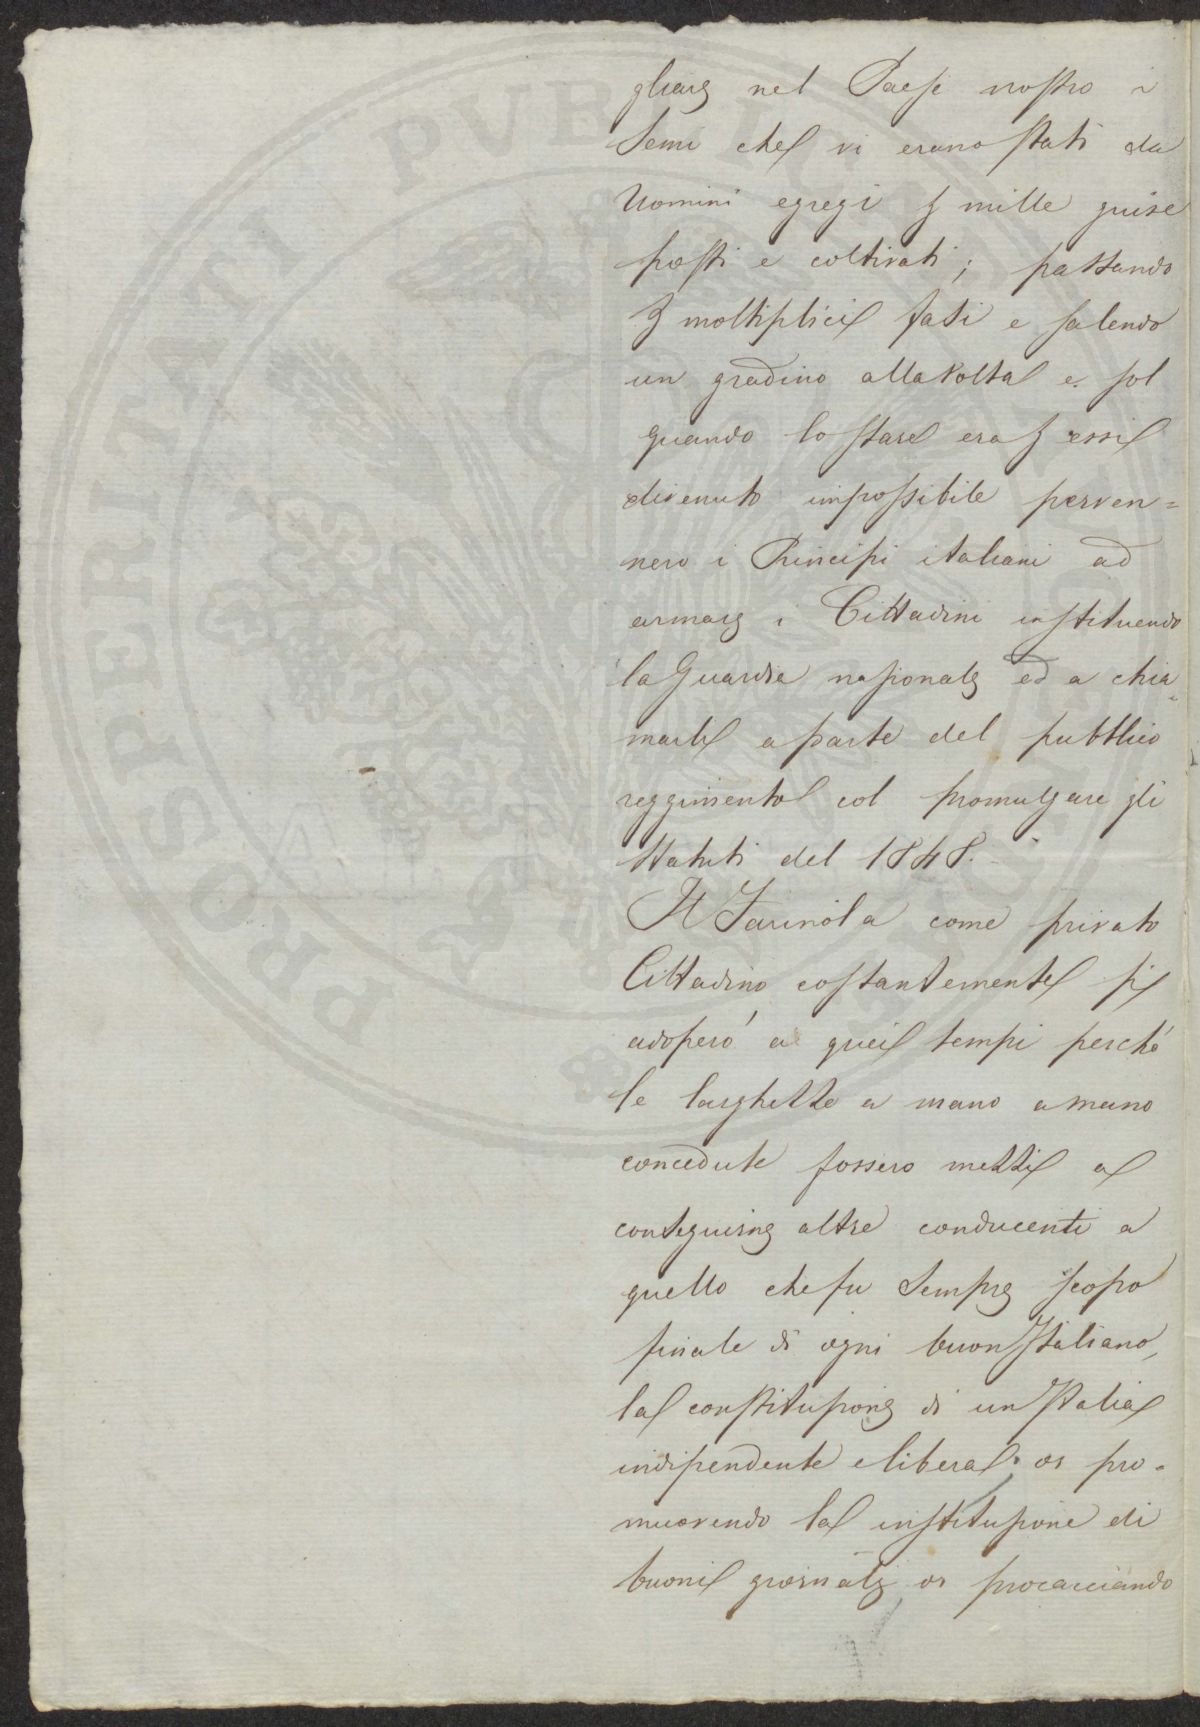 gliare nel Paese nostro i
semi che vi erano stati da
Uomini egregi p mille guise
posti e coltivati; passando
p moltiplici fasi e salendo
un gradino alla volta e sol
quando lo stare era p essi
divenuto impossibile perven=
nero i Principi italiani ad
armare i Cittadini instituendo
la Guardia nazionale ed a chia=
marli a parte del pubblico
reggimento col promulgare gli
Statuti del 1848.
Il Farinola come privato
Cittadino costantemente si
adoperò a quei tempi perchè
le larghezze a mano a mano
concedute fossero mezzi a
conseguirne altre conducenti a
quello che fu sempre scopo
finale di ogni buon Italiano,
la constituzione di un Italia
indipendente e libera; or pro=
muovendo la instituzione di
buoni giornali, or procacciando
PROSPERITATI PUBLICAE